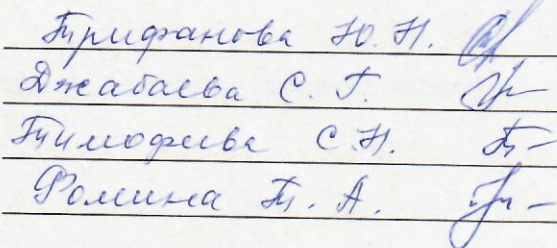 Трифанова Ю. Н.
Джабаева С. Г.
Тимофева С. Н.
Фомина Т. А.